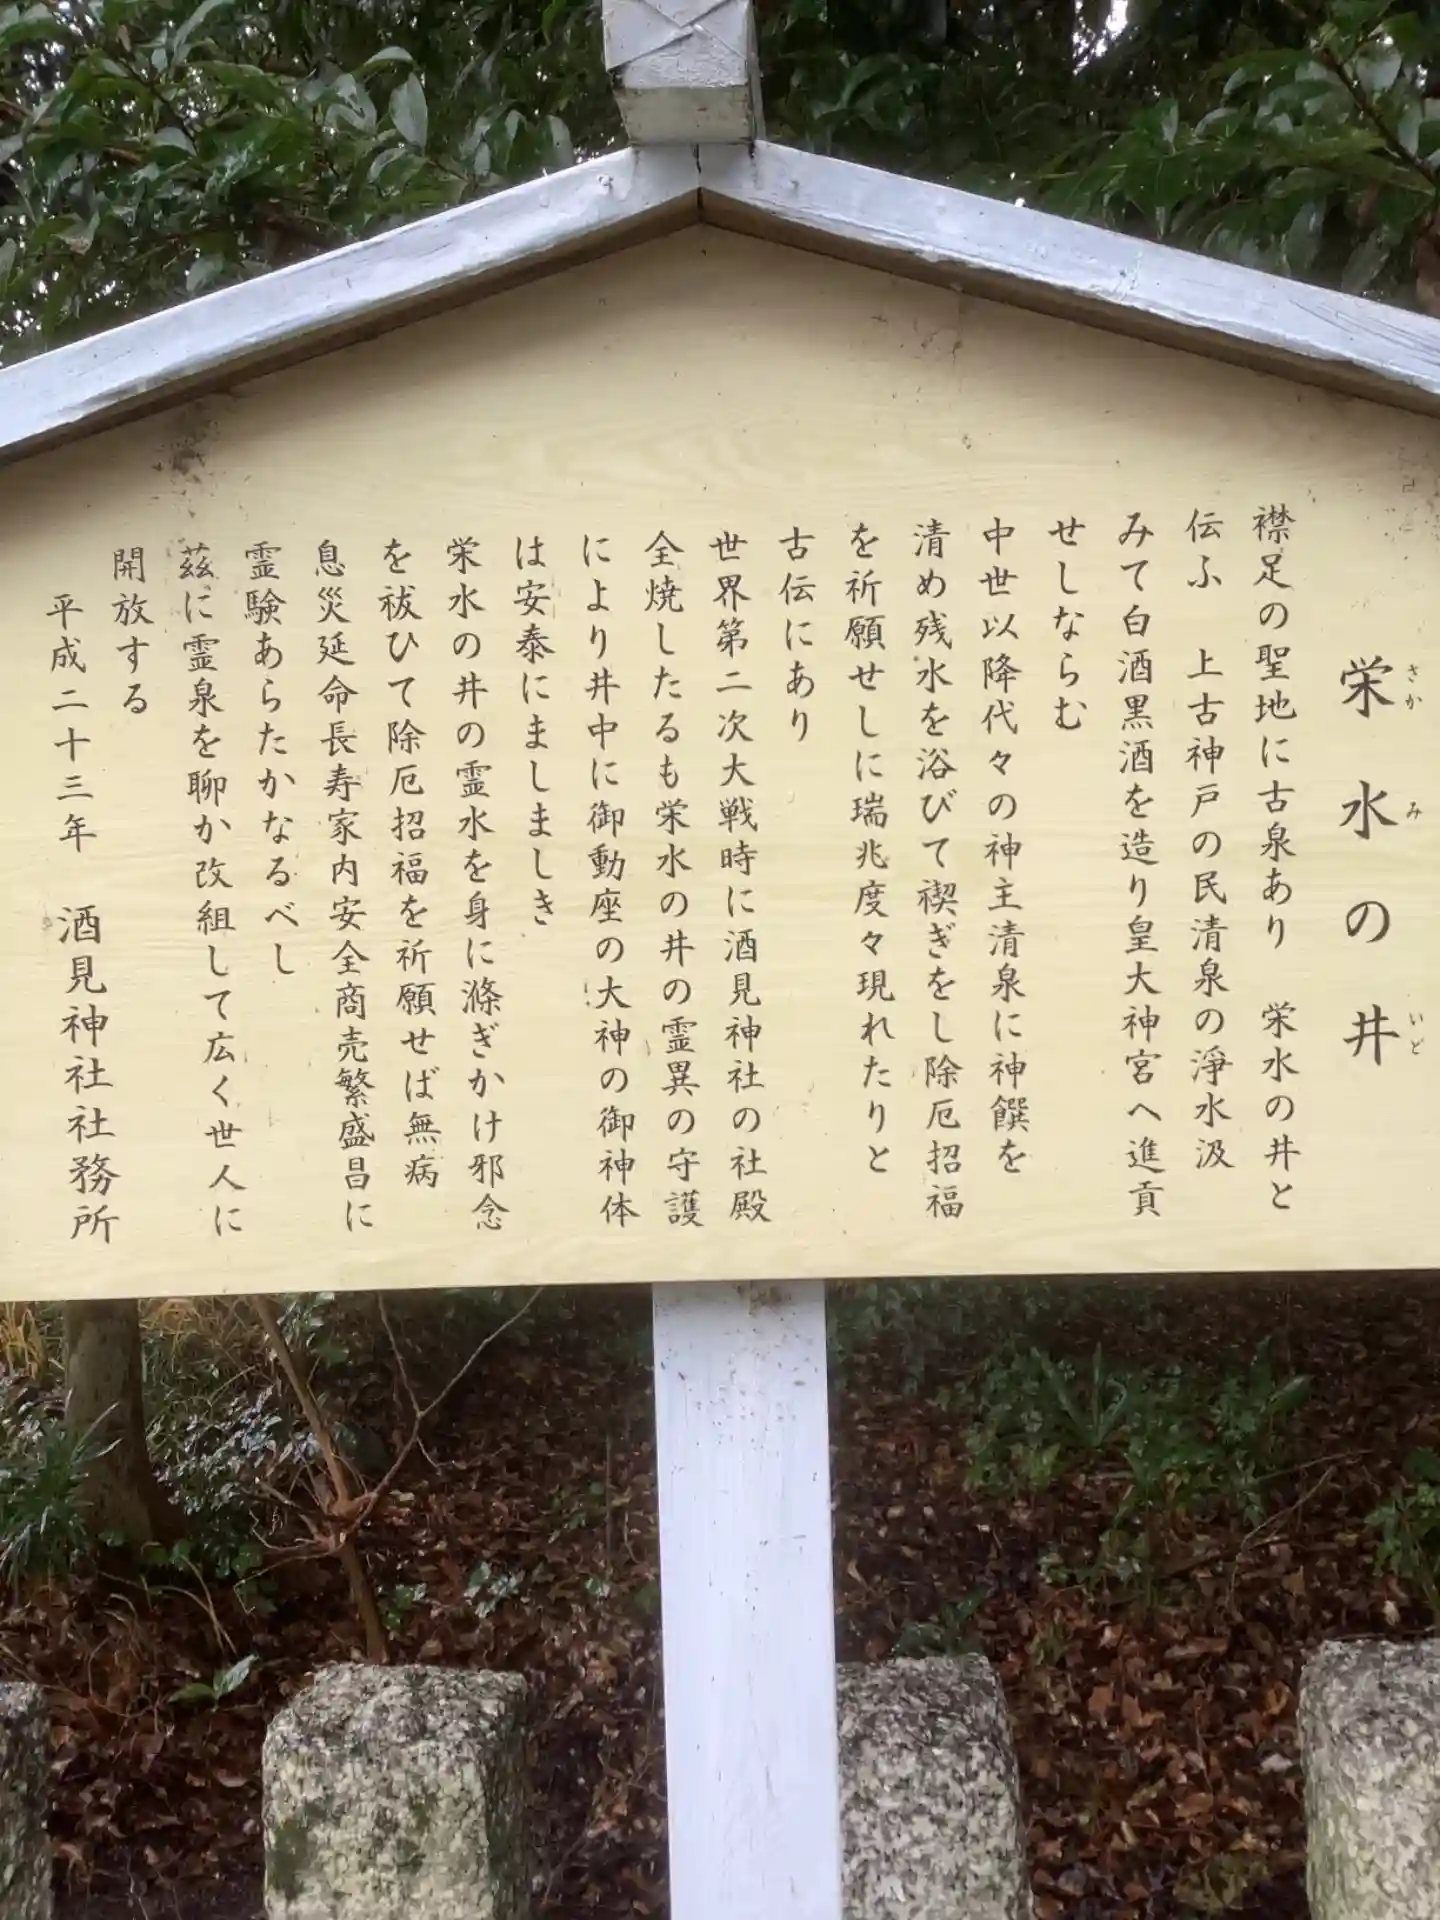 栄水の井
さか み いど
襟足の聖地に古泉あり 栄水の井と
伝ふ 上古神戸の民清泉の淨水汲
みて白酒黒酒を造り皇大神宮へ進貢
せしならむ
中世以降代々の神主清泉に神饌を
清め残水を浴びて禊ぎをし除厄招福
を祈願せしに瑞兆度々現れたりと
古伝にあり
世界第二次大戦時に酒見神社の社殿
全焼したるも栄水の井の霊異の守護
により井中に御動座の大神の御神体
は安泰にましましき
栄水の井の霊水を身に滌ぎかけ邪念
を祓ひて除厄招福を祈願せば無病
息災延命長寿家内安全商売繁盛昌に
霊験あらたかなるべし
茲に霊泉を聊か改組して広く世人に
開放する
平成二十三年 酒見神社社務所